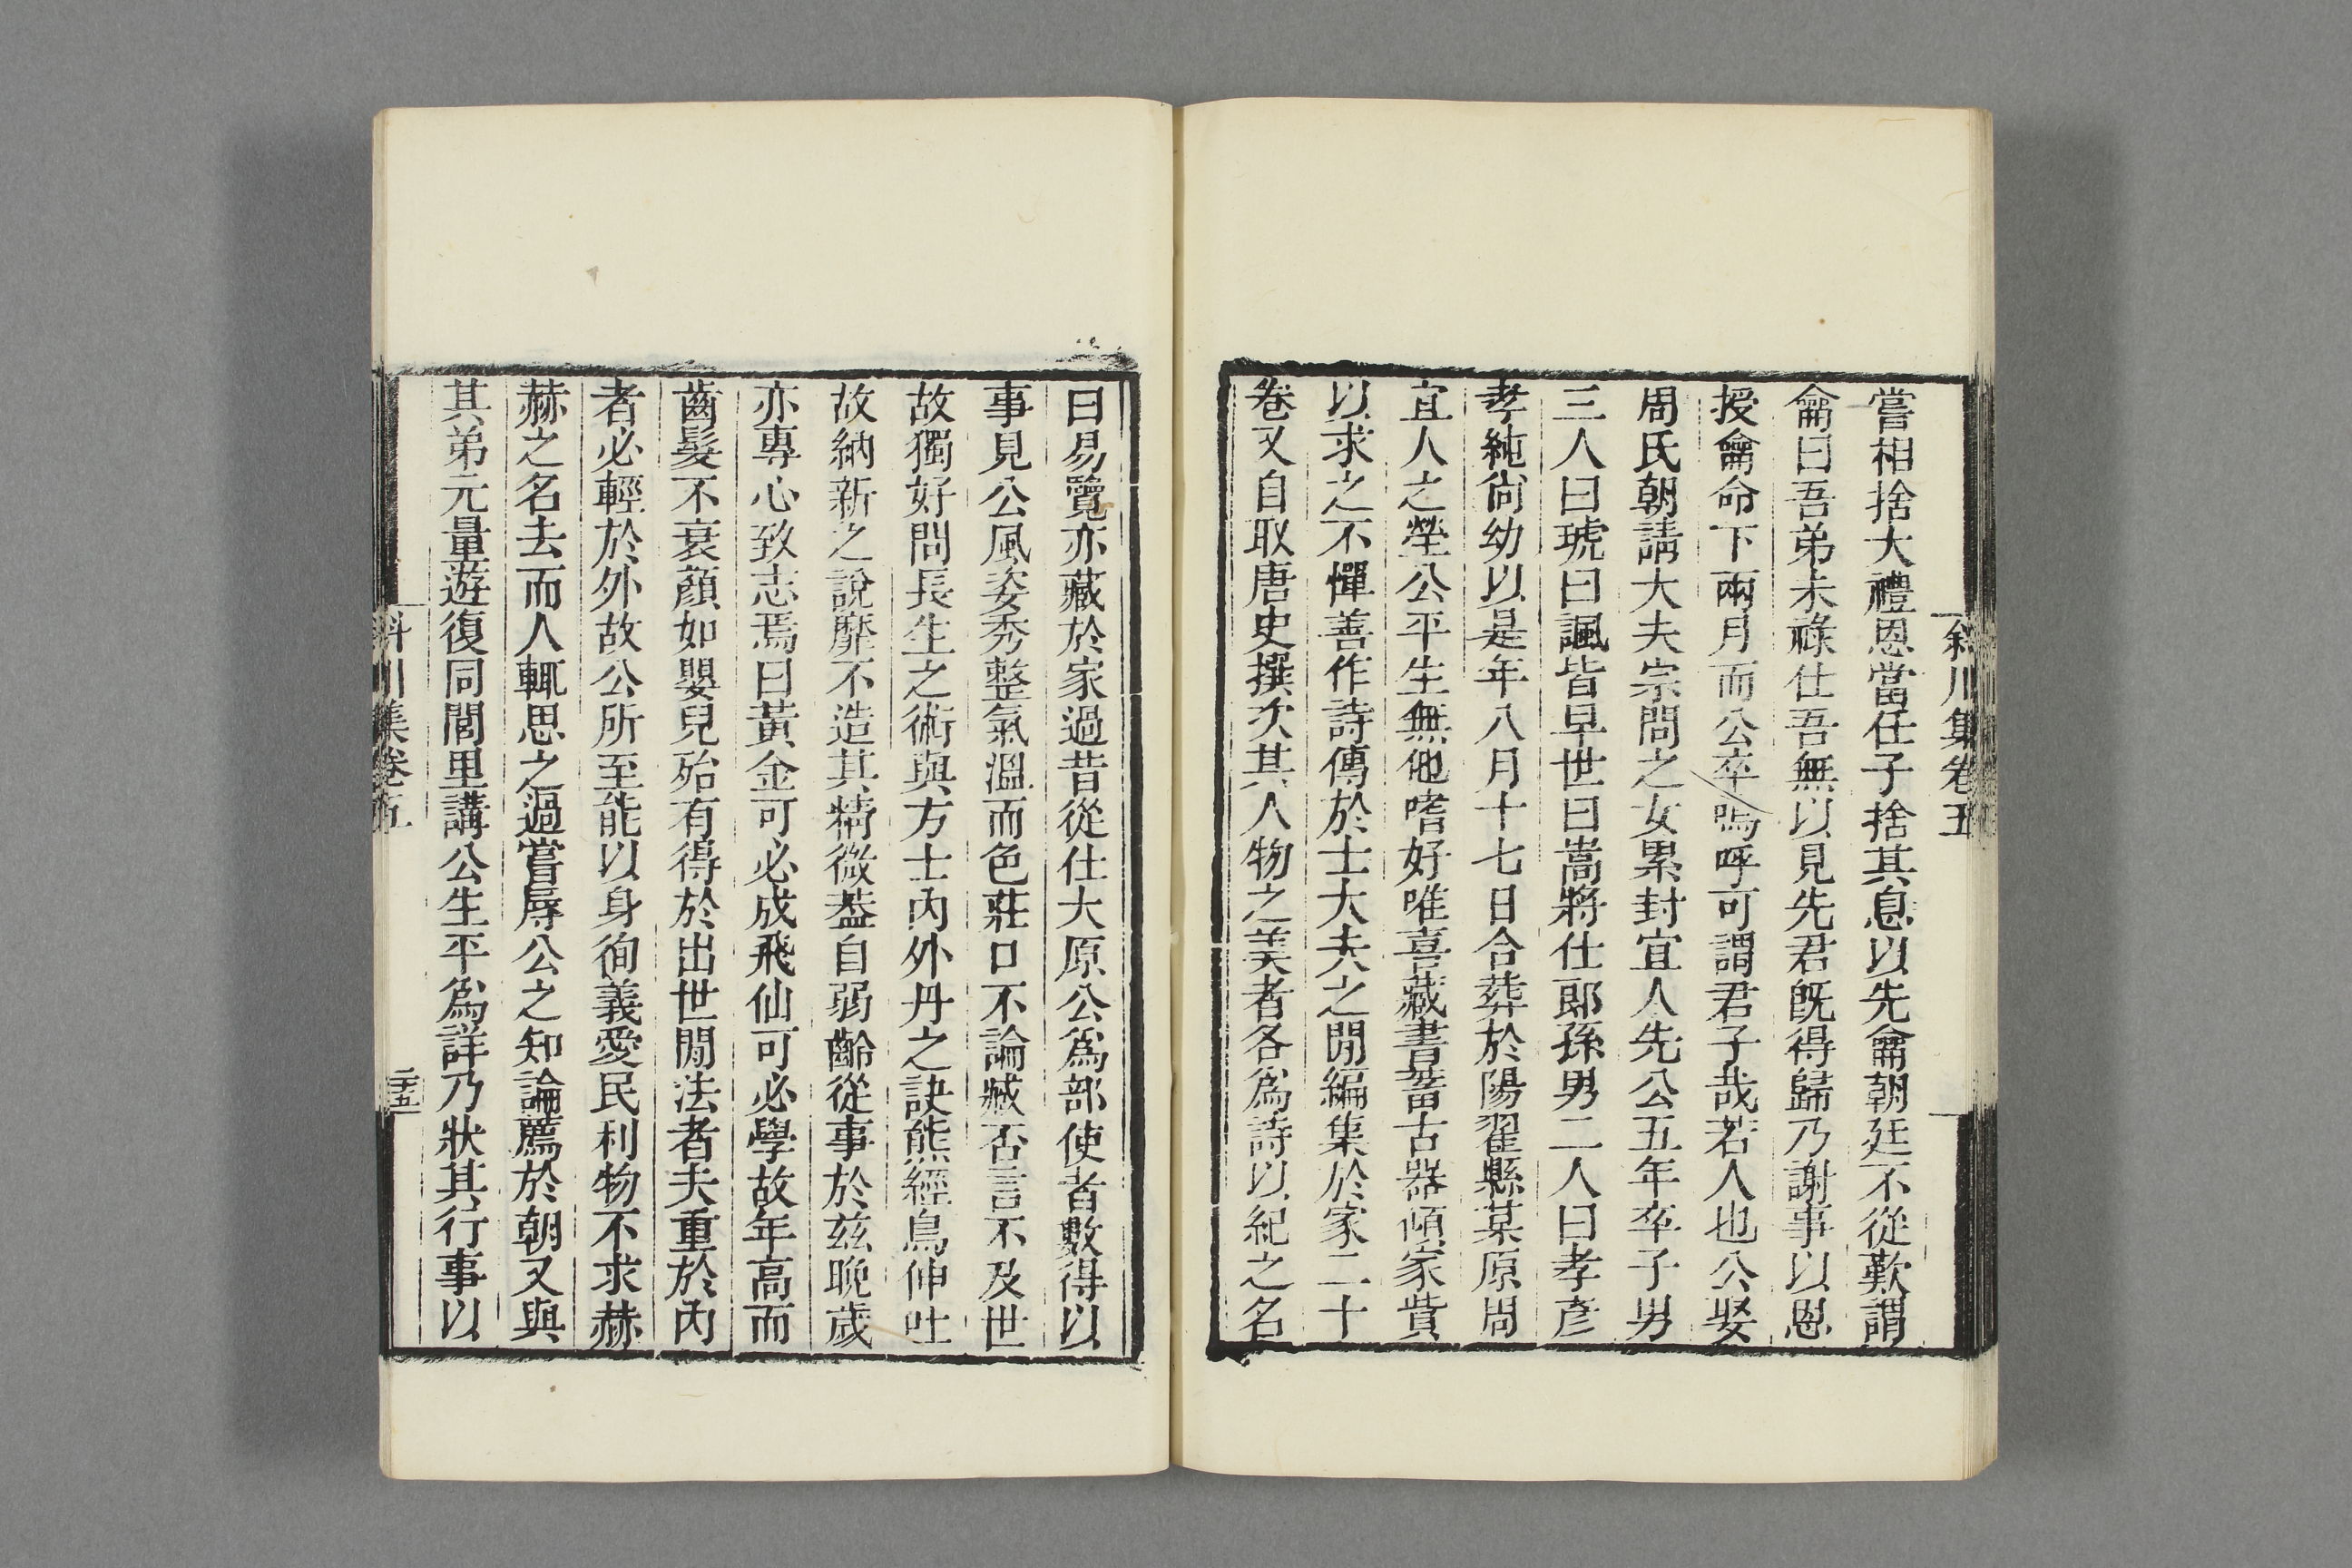 斜川集卷五
嘗相捨大禮恩當任子捨其息以先龠朝廷不從歎謂
龠曰吾弟未祿仕吾無以見先君旣得歸乃謝事以恩
授龠命下兩月而公卒嗚呼可謂君子哉若人也公娶
周氏朝請大夫宗問之女累封宜人先公五年卒子男
三人曰琥曰諷皆早世曰嵩將仕郎孫男二人曰孝彥
孝純尙幼以是年八月十七日合葬於陽翟縣某原周
宜人之塋公平生無他嗜好唯喜藏書蓄古器傾家貲
以求之不憚善作詩傳於士大夫之閒編集於家二十
卷又自取唐史撰次其人物之美者各爲詩以紀之名
曰易覽亦藏於家過昔從仕大原公爲部使者數得以
事見公風姿秀整氣溫而色莊口不論臧否言不及世
故獨好問長生之術與方士內外丹之訣熊經鳥伸吐
故納新之說靡不造其精微葢自弱齡從事於茲晚歲
亦專心致志焉曰黃金可必成飛仙可必學故年高而
齒髮不衰顏如嬰兒殆有得於出世閒法者夫重於內
者必輕於外故公所至能以身徇義愛民利物不求赫
赫之名去而人輒思之過嘗辱公之知論薦於朝又與
其弟元量遊復同閭里講公生平爲詳乃狀其行事以
斜川集卷五
二十五